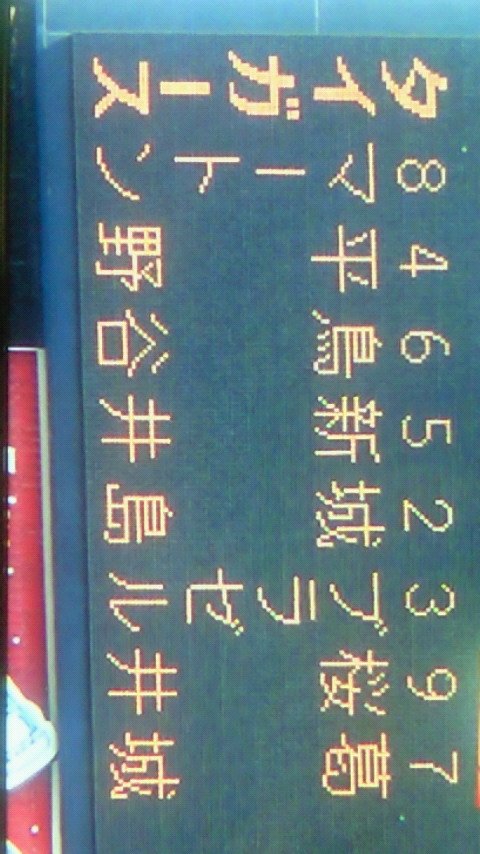 タイガース
8 マートン
4 平野
6 鳥谷
5 新井
2 城島
3 ブラゼル
9 桜井
7 葛城